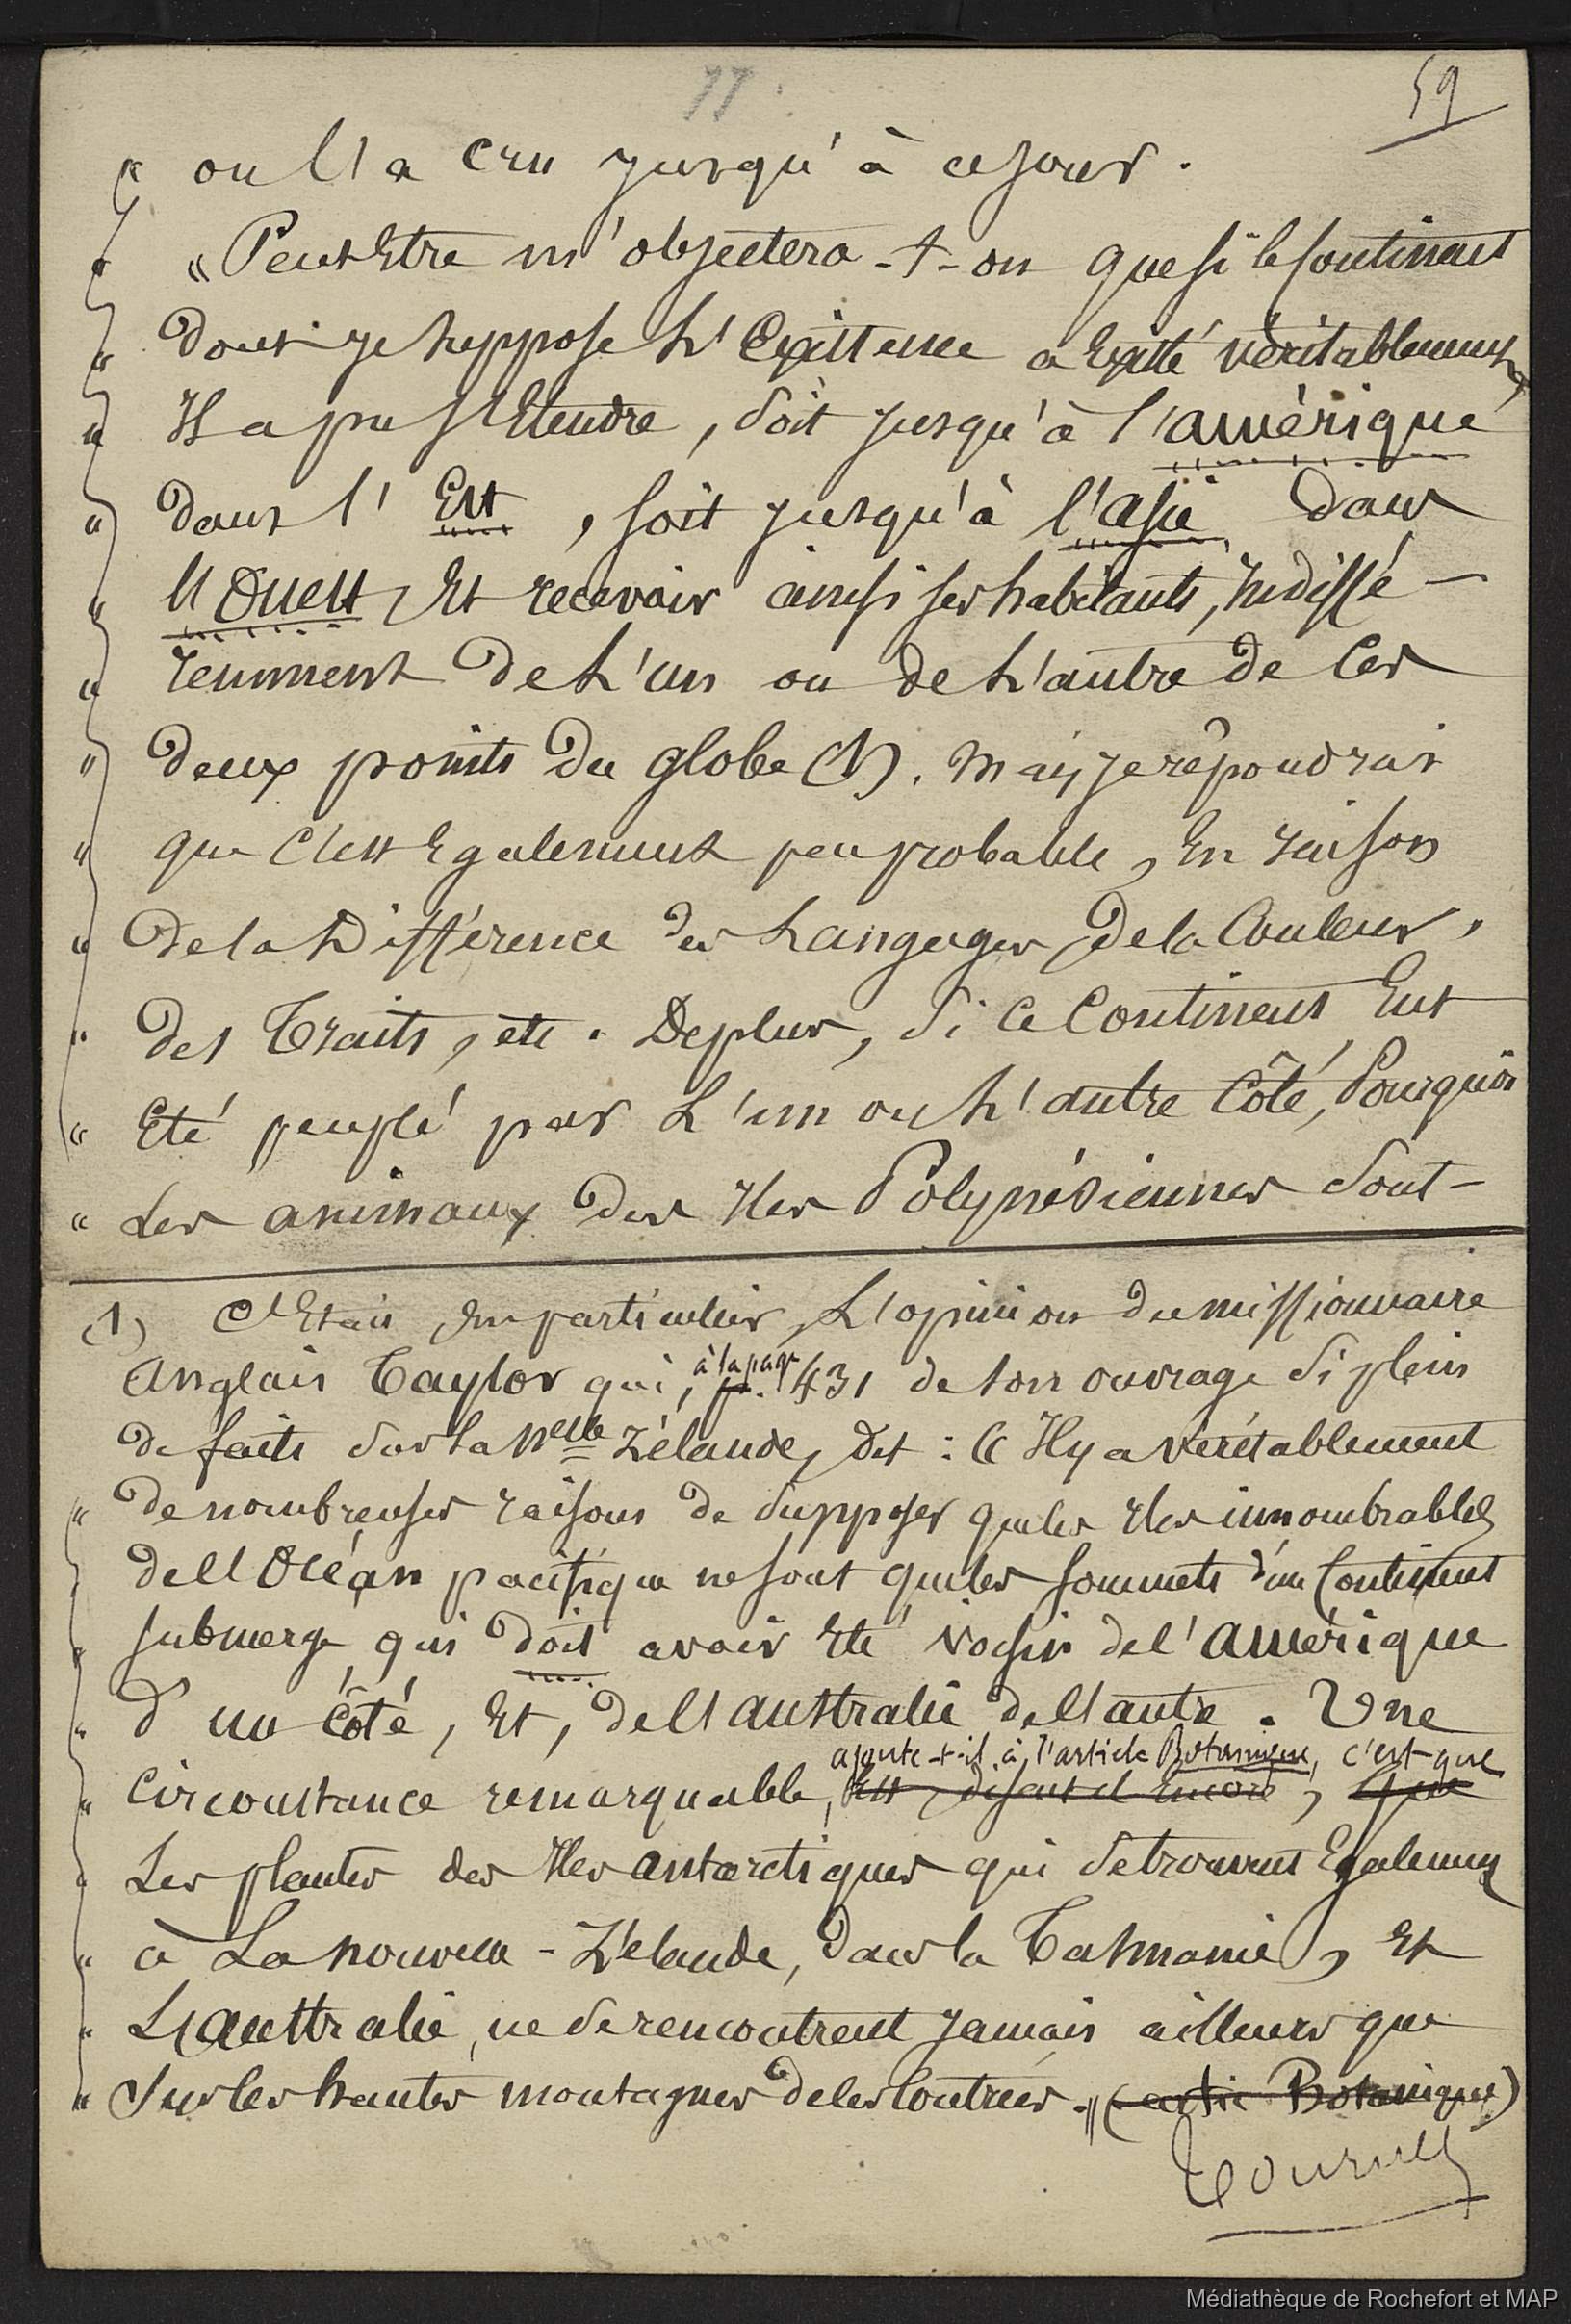 77
59
« ou l'a cru jusqu'à ce jour.
« « Peut Etre m'objectera-t-on que si le Continent
« dont je suppose L'Existence a Existé véritablement,
« Il a pu s'Etendre, soit jusqu'à l'amérique
« dans l'Est, soit jusqu'à l'asie dans
« l'Ouest, Et recevoir ainsi ses habitants, Indiffé-
« remment de L'un ou de L'autre de Ces
« deux points du globe (1). Mais je répondrais
« que C'est Egalement peu probable, En raison
« de la Différence des Langages, de la Couleur,
« des Traits, etc. De plus, si Ce Continent Eut
« Eté peuplé par L'un ou L'autre Côté, Pourquoi
« Les animaux des Iles Polynésiennes sont-
(1) C'Etait En particulier, L'opinion du missionnaire
Anglais Taylor qui, à la page p. 431 de son ouvrage si plein
de faits sur La Nelle Zélande, Dit : « Il y a véritablement
« de nombreuses raisons de supposer que les Iles innombrables
« de l'Océan pacifique ne sont que les sommets d'un Continent
« submergé qui doit avoir Eté voisin de l'amérique
« d'un Côté, Et, de l'australie de l'autre. Une
ajoute-t-il à l'article Botanique, c'est que
« Circonstance remarquable, Est, disait-il Encore, Que
« Les plantes des Iles antarctiques qui se trouvent Egalement
« à La nouvelle-Zélande, dans la Tasmanie, Et
« L'australie, ne se rencontrent jamais ailleurs que
« sur les hautes montagnes de les Contrées. » (artic Botanique)
Tournez
Médiathèque de Rochefort et MAP